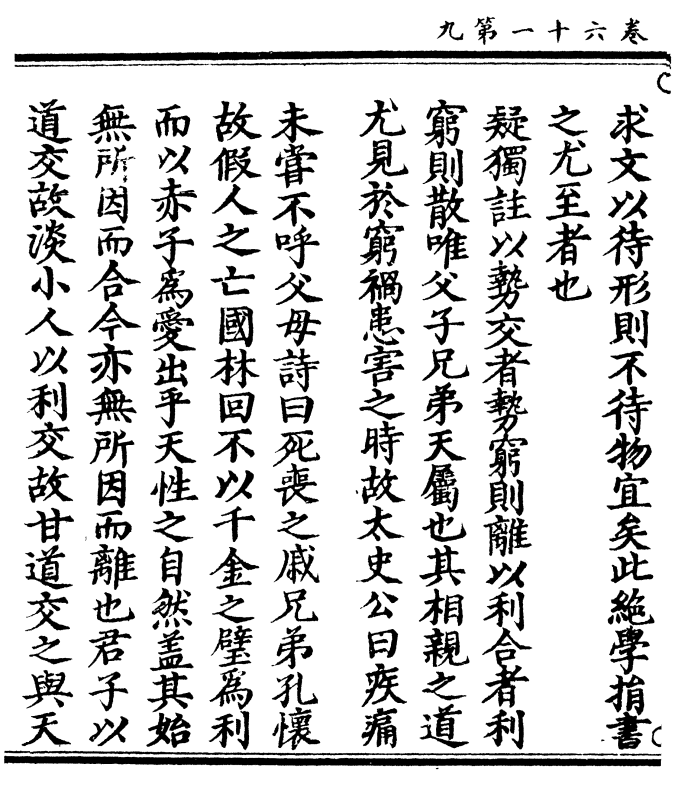 卷六十一第九
求文以待形則不待物宜矣此絶學捐書
之尤至者也
疑獨註以勢交者勢窮則離以利合者利
窮則散唯父子兄弟天屬也其相親之道
尤見於窮禍患害之時故太史公曰疾痛
未嘗不呼父母詩曰死喪之戚兄弟孔懷
故假人之亡國林回不以千金之璧爲利
而以赤子爲愛出乎天性之自然盖其始
無所因而合今亦無所因而離也君子以
道交故淡小人以利交故甘道交之與天